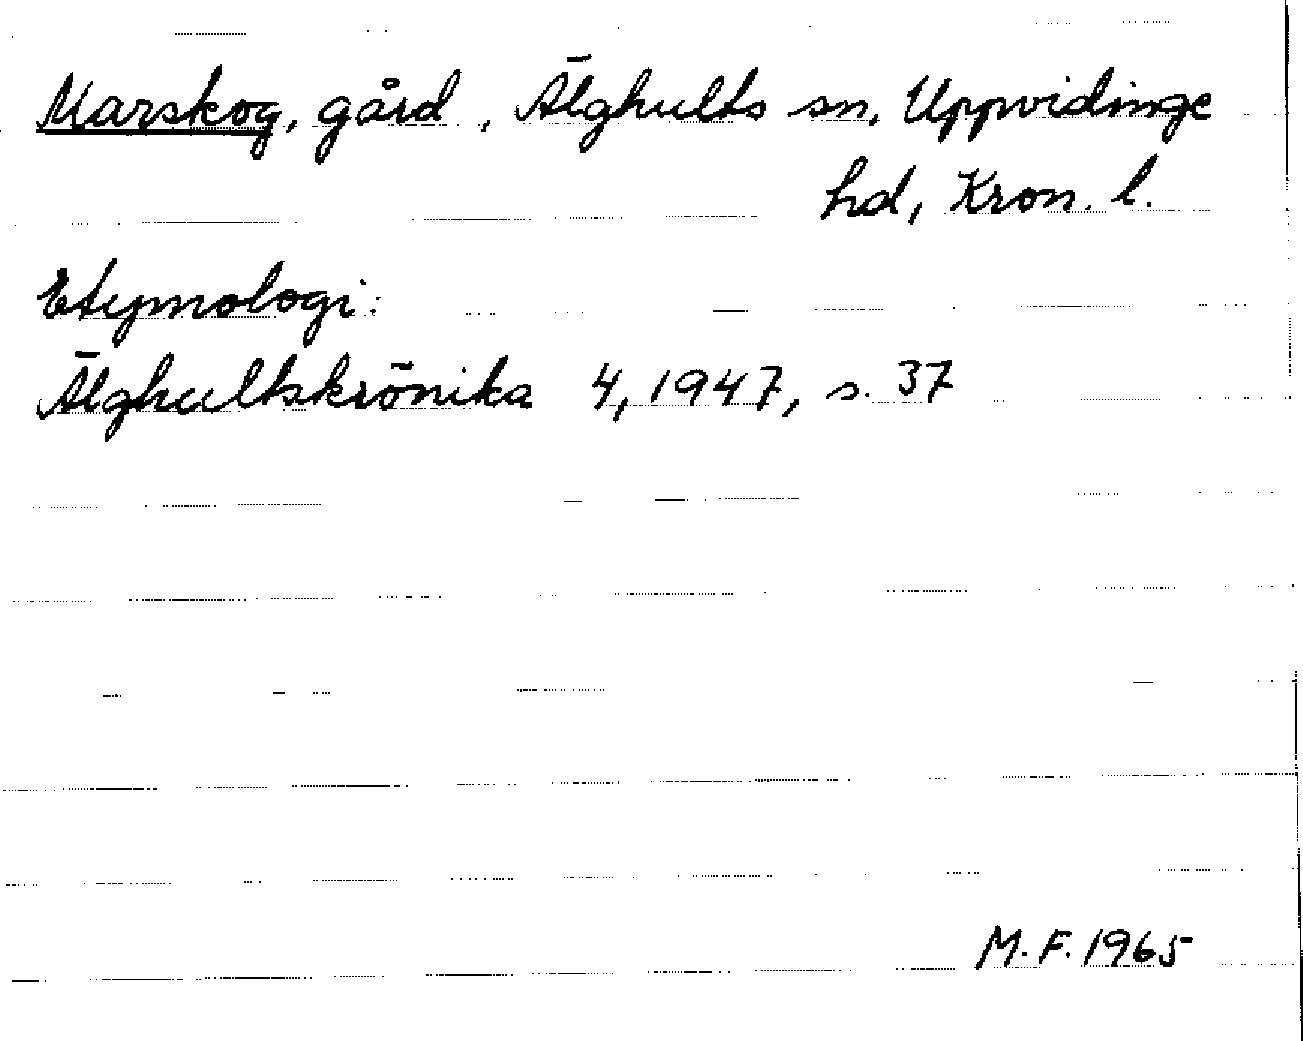 Marskog, gård, Älghults sn, Uppvidinge
hd, Kron. l.
Etymologi:
Älghultskrönika 4, 1947, s. 37
M.F. 1965